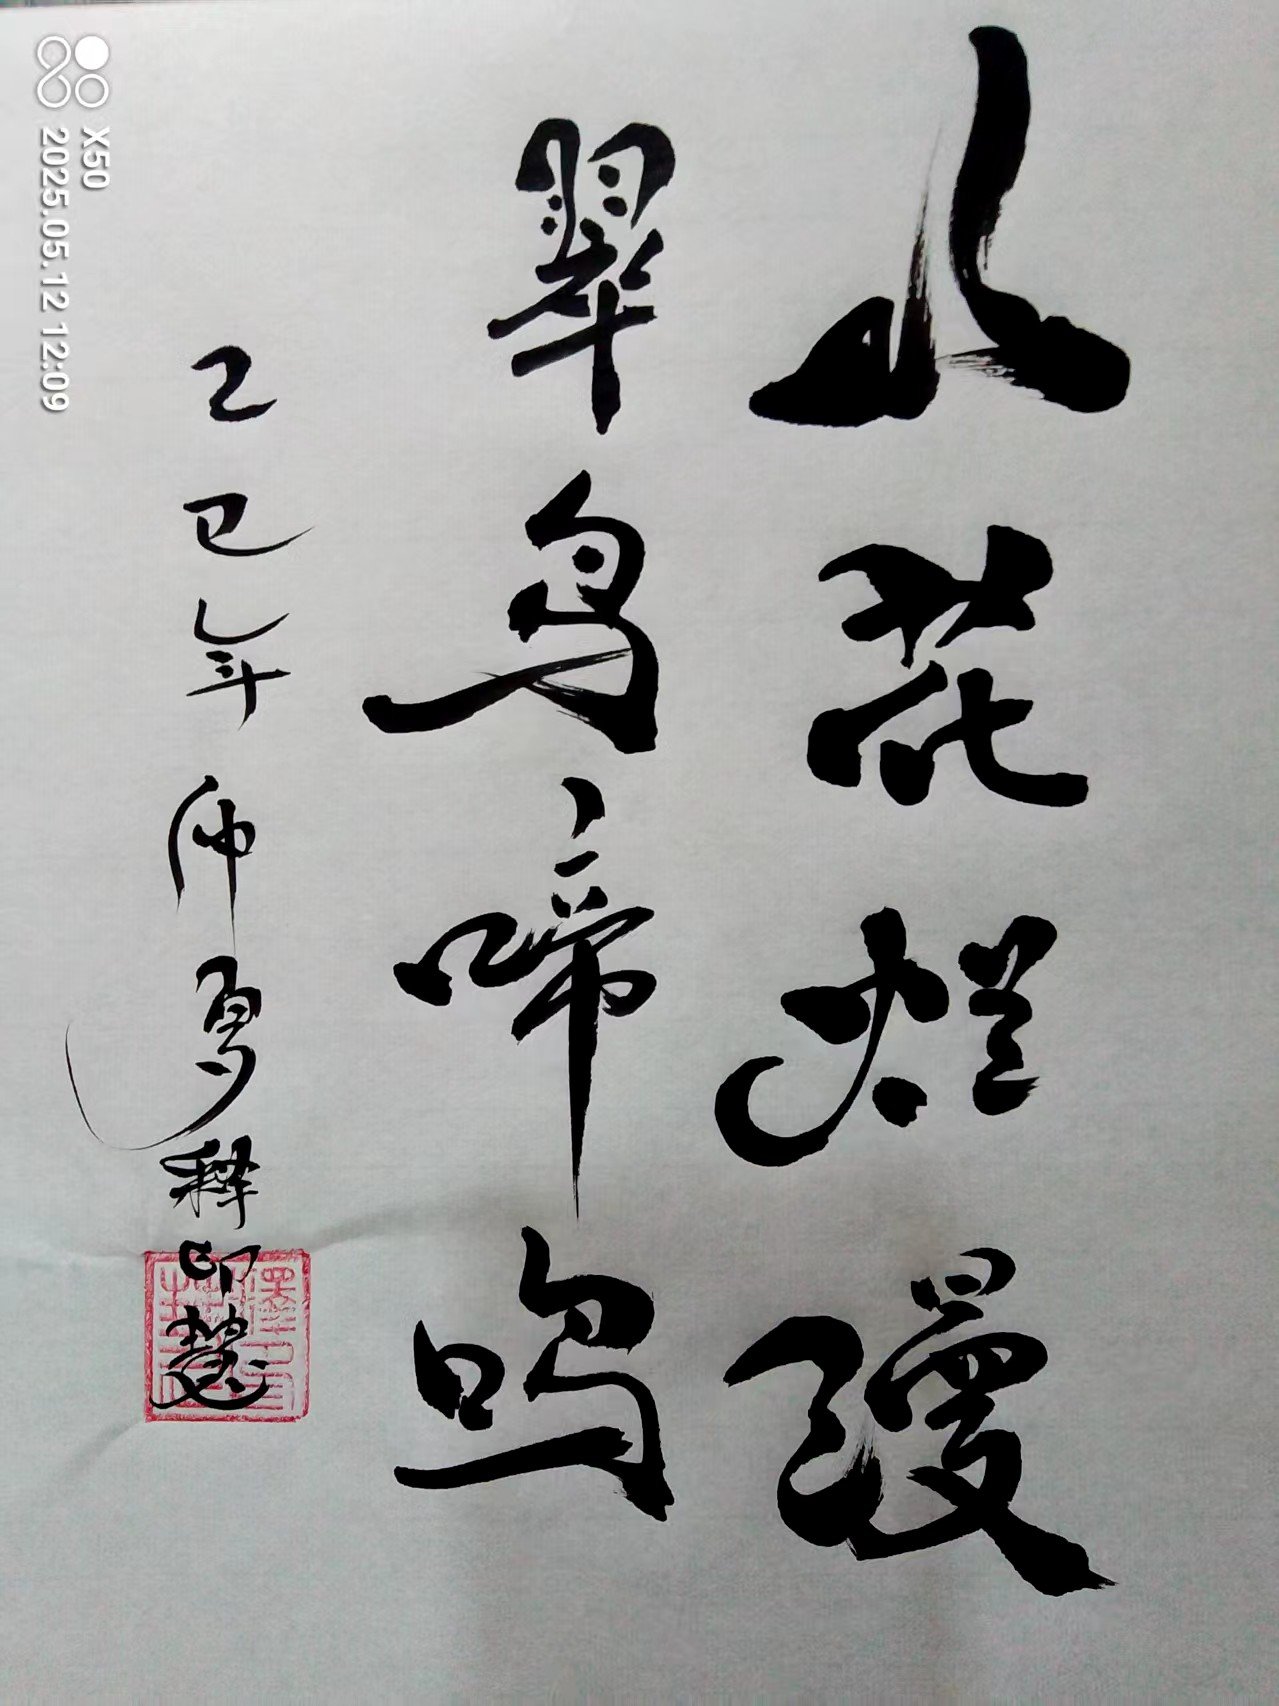 山花烂漫
翠鸟啼鸣
乙巳年仲夏释印慧
X50
2025.05.12 12:09